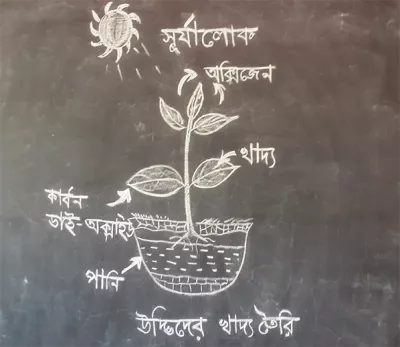 সূর্যালোক
অক্সিজেন
খাদ্য
কার্বন
ডাই-অক্সাইড
পানি
উদ্ভিদের খাদ্য তৈরি